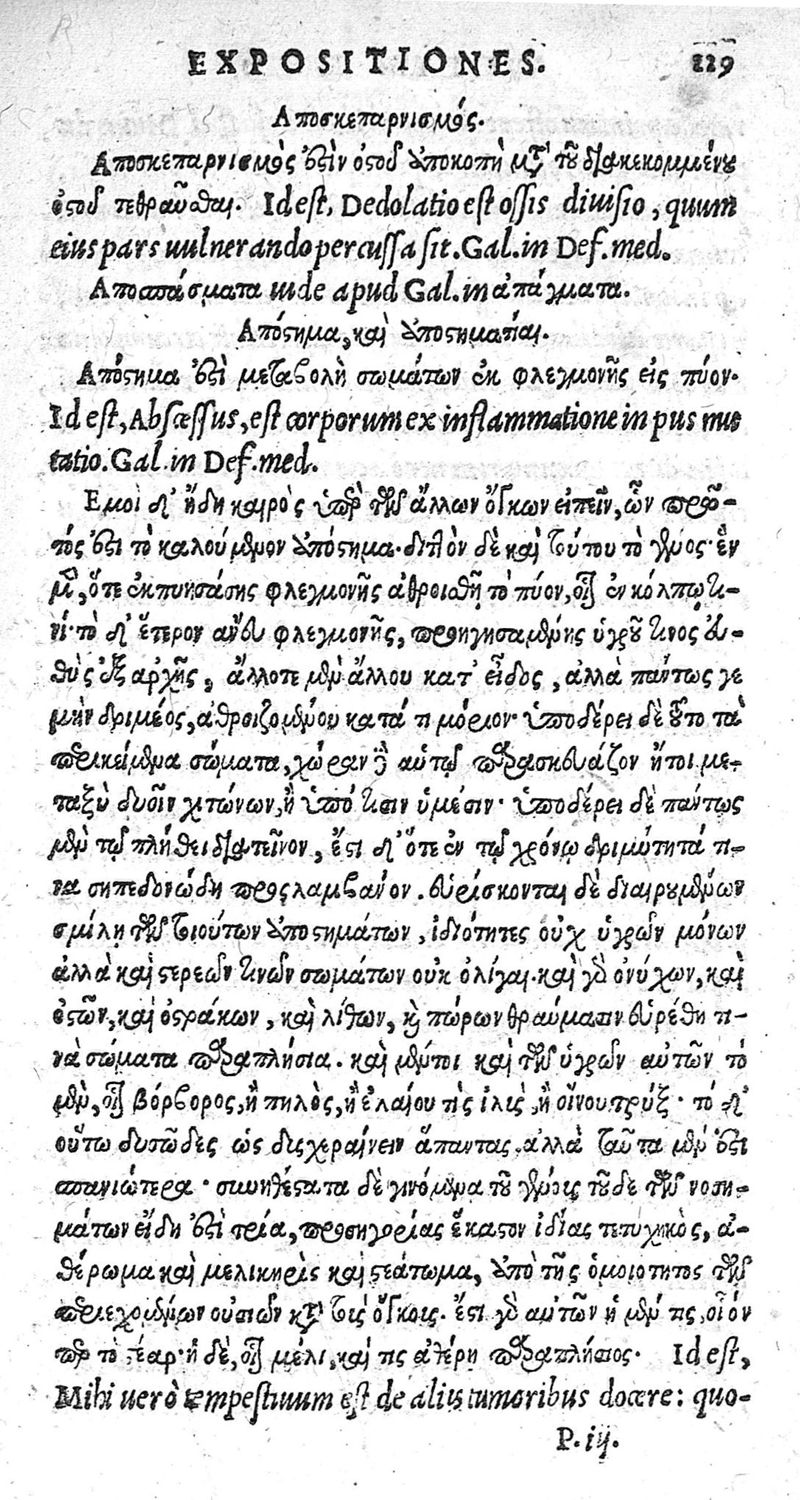 EXPOSITIONES. 119
Αποσκεπαρνισμός.
Αποσκεπαρνισμός ἐστὶν ὀστοῦ ἀποκοπὴ μετὰ τοῦ διακεκομμένου
ὀστοῦ τεθραῦσθαι. Id est, Dedolatio est ossis diuisio, quum
eius pars uulnerando percussa sit. Gal. in Def. med.
Αποσπάσματα uide apud Gal. in ἀπάγματα.
Απόστημα, καὶ ἀποστηματίαι.
Απόστημα ἐστὶ μεταβολὴ σωμάτων ἐκ φλεγμονῆς εἰς πύον.
Id est, Abscessus, est corporum ex inflammatione in pus mu
tatio. Gal. in Def. med.
Εμοὶ δ' ἤδη καιρὸς ὑπὲρ τῶν ἄλλων ὄγκων εἰπεῖν, ὧν πρῶ-
τός ἐστι τὸ καλούμενον ἀπόστημα. διττὸν δὲ καὶ τούτου τὸ γένος· ἓν
μὲν, ὅτε ἐκπυησάσης φλεγμονῆς ἀθροισθῇ τὸ πύον, οἷον ἐν κόλπῳ τι-
νί· τὸ δ' ἕτερον ἄνευ φλεγμονῆς, προηγησαμένης ὑγροῦ τινος εὐ-
θὺς ἐξ ἀρχῆς, ἄλλοτε μὲν ἄλλου κατ' εἶδος, ἀλλὰ πάντως γε
μὴν δριμέος, ἀθροιζομένου κατά τι μόριον· ὑποδέρει δὲ τοῦτο τὰ
περικείμενα σώματα, χώραν γε αὑτῷ παρασκευάζον ἤτοι με-
ταξὺ δυοῖν χιτώνων, ἢ ὑπό τισιν ὑμέσιν· ὑποδέρει δὲ πάντως
μὲν τῷ πλήθει διατεῖνον, ἔστι δ' ὅτε ἐν τῷ χρόνῳ δριμύτητά τι-
να σηπεδονώδη προςλαμβάνον. εὑρίσκονται δὲ διαιρουμένων
σμίλῃ τῶν τοιούτων ἀποστημάτων, ἰδιότητες οὐχ ὑγρῶν μόνων
ἀλλὰ καὶ στερεῶν τινῶν σωμάτων οὐκ ὀλίγαι. καὶ γὰρ ὀνύχων, καὶ
ὀστῶν, καὶ ὀστράκων, καὶ λίθων, καὶ πώρων θραύμασιν εὑρέθη τι-
νὰ σώματα παραπλήσια. καὶ μέντοι καὶ τῶν ὑγρῶν αὐτῶν τὸ
μὲν, οἷον βόρβορος, ἢ πηλὸς, ἢ ἐλαίου τὶς ἰλὺς, ἢ οἴνου τρύξ· τὸ δ'
οὕτω δυσῶδες ὡς δυςχεραίνειν ἅπαντας. ἀλλὰ ταῦτα μὲν ἐστι
σπανιώτερα· συνηθέστατα δὲ γινόμενα τοῦ γένους τοῦδε τῶν νοση-
μάτων εἴδη ἐστὶ τρία, προσηγορίας ἕκαστον ἰδίας τετυχικὸς, ἀ-
θέρωμα καὶ μελικηρὶς καὶ στεάτωμα, ἀπὸ τῆς ὁμοιότητος τῶν
περιεχομένων οὐσιῶν κατὰ τοὺς ὄγκους. ἔστι γὰρ αὐτῶν ἡ μέν τις, οἷόν
περ τὸ στέαρ· ἡ δὲ, οἷον μέλι, καὶ τις ἀθέρῃ παραπλήσιος. Id est,
Mihi uerò tempestiuum est de aliis tumoribus docere: quo-
P. iij.